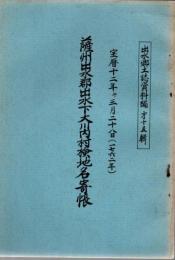 出水郷土誌資料編 才十五輯
宝暦十二年午三月二十八日(一七六二年)
薩州出水郡出水下大川内村検地名寄帳